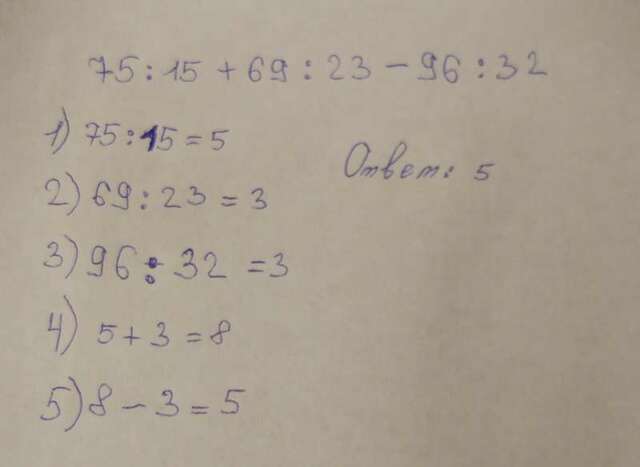 75 : 15 + 69 : 23 - 96 : 32
1) 75 : 15 = 5
2) 69 : 23 = 3
3) 96 : 32 = 3
4) 5 + 3 = 8
5) 8 - 3 = 5
Ответ: 5